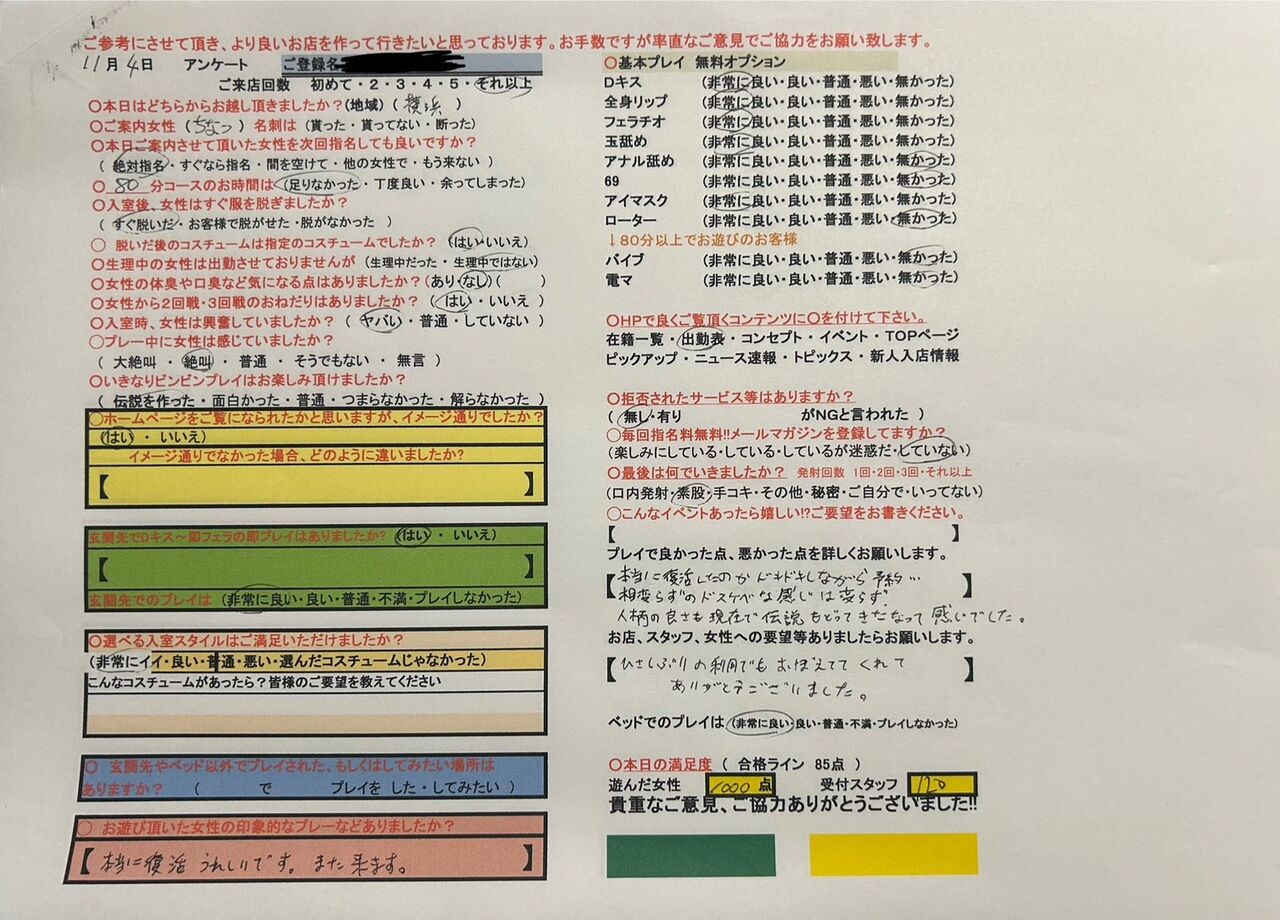 ご参考にさせて頂き、より良いお店を作って行きたいと思っております。お手数ですが率直なご意見でご協力をお願い致します。
11月4日 アンケート ご登録名
ご来店回数 初めて・2・3・4・5・それ以上
〇本日はどちらからお越し頂きましたか?(地域) ( 横浜 )
〇ご案内女性 (ちなつ) 名刺は (貰った・貰ってない・断った)
〇本日ご案内させて頂いた女性を次回指名しても良いですか?
( 絶対指名・すぐなら指名・間を空けて・他の女性で・もう来ない )
〇 80 分コースのお時間は (足りなかった・丁度良い・余ってしまった)
〇入室後、女性はすぐ服を脱ぎましたか?
( すぐ脱いだ・お客様で脱がせた・脱がなかった )
〇 脱いだ後のコスチュームは指定のコスチュームでしたか? (はい・いいえ)
〇生理中の女性は出勤させておりませんが (生理中だった・生理中ではない)
〇女性の体臭や口臭など気になる点はありましたか?(あり・なし)( )
〇女性から2回戦・3回戦のおねだりはありましたか? ( はい・いいえ )
〇入室時、女性は興奮していましたか? ( ヤバい・普通・していない )
〇プレー中に女性は感じていましたか?
( 大絶叫・絶叫・普通・そうでもない・無言 )
〇いきなりビンビンプレイはお楽しみ頂けましたか?
( 伝説を作った・面白かった・普通・つまらなかった・解らなかった )
〇ホームページをご覧になられたかと思いますが、イメージ通りでしたか?
(はい・いいえ)
イメージ通りでなかった場合、どのように違いましたか?
【 】
玄関先でDキス～即フェラの即プレイはありましたか? (はい・いいえ)
【 】
玄関先でのプレイは (非常に良い・良い・普通・不満・プレイしなかった)
〇選べる入室スタイルはご満足いただけましたか?
(非常にイイ・良い・普通・悪い・選んだコスチュームじゃなかった)
こんなコスチュームがあったら?皆様のご要望を教えてください
〇 玄関先やベッド以外でプレイされた、もしくはしてみたい場所は
ありますか? ( で プレイを した・してみたい )
〇 お遊び頂いた女性の印象的なプレーなどありましたか?
【 本当に復活 うれしいです。また来ます。 】
〇基本プレイ 無料オプション
Dキス (非常に良い・良い・普通・悪い・無かった)
全身リップ (非常に良い・良い・普通・悪い・無かった)
フェラチオ (非常に良い・良い・普通・悪い・無かった)
玉舐め (非常に良い・良い・普通・悪い・無かった)
アナル舐め (非常に良い・良い・普通・悪い・無かった)
69 (非常に良い・良い・普通・悪い・無かった)
アイマスク (非常に良い・良い・普通・悪い・無かった)
ローター (非常に良い・良い・普通・悪い・無かった)
↓80分以上でお遊びのお客様
バイブ (非常に良い・良い・普通・悪い・無かった)
電マ (非常に良い・良い・普通・悪い・無かった)
〇HPで良くご覧頂くコンテンツに〇を付けて下さい。
在籍一覧・出勤表・コンセプト・イベント・TOPページ
ピックアップ・ニュース速報・トピックス・新人入店情報
〇拒否されたサービス等はありますか?
( 無し・有り がNGと言われた )
〇毎回指名料無料!!メールマガジンを登録してますか?
(楽しみにしている・している・しているが迷惑だ・していない)
〇最後は何でいきましたか? 発射回数 1回・2回・3回・それ以上
(口内発射・素股・手コキ・その他・秘密・ご自分で・いってない)
〇こんなイベントあったら嬉しい!?ご要望をお書きください。
【 】
プレイで良かった点、悪かった点を詳しくお願いします。
【本当に復活したのかドキドキしながら予約… 】
相変らずのドスケベな感じは変らず
人柄の良さも現在で伝説もどってきたなって感じでした。
お店、スタッフ、女性への要望等ありましたらお願いします。
【ひさしぶりの利用でもおぼえててくれて 】
ありがとうございました。
ベッドでのプレイは (非常に良い・良い・普通・不満・プレイしなかった)
〇本日の満足度 ( 合格ライン 85点 )
遊んだ女性 1000 点 受付スタッフ 120
貴重なご意見、ご協力ありがとうございました!!